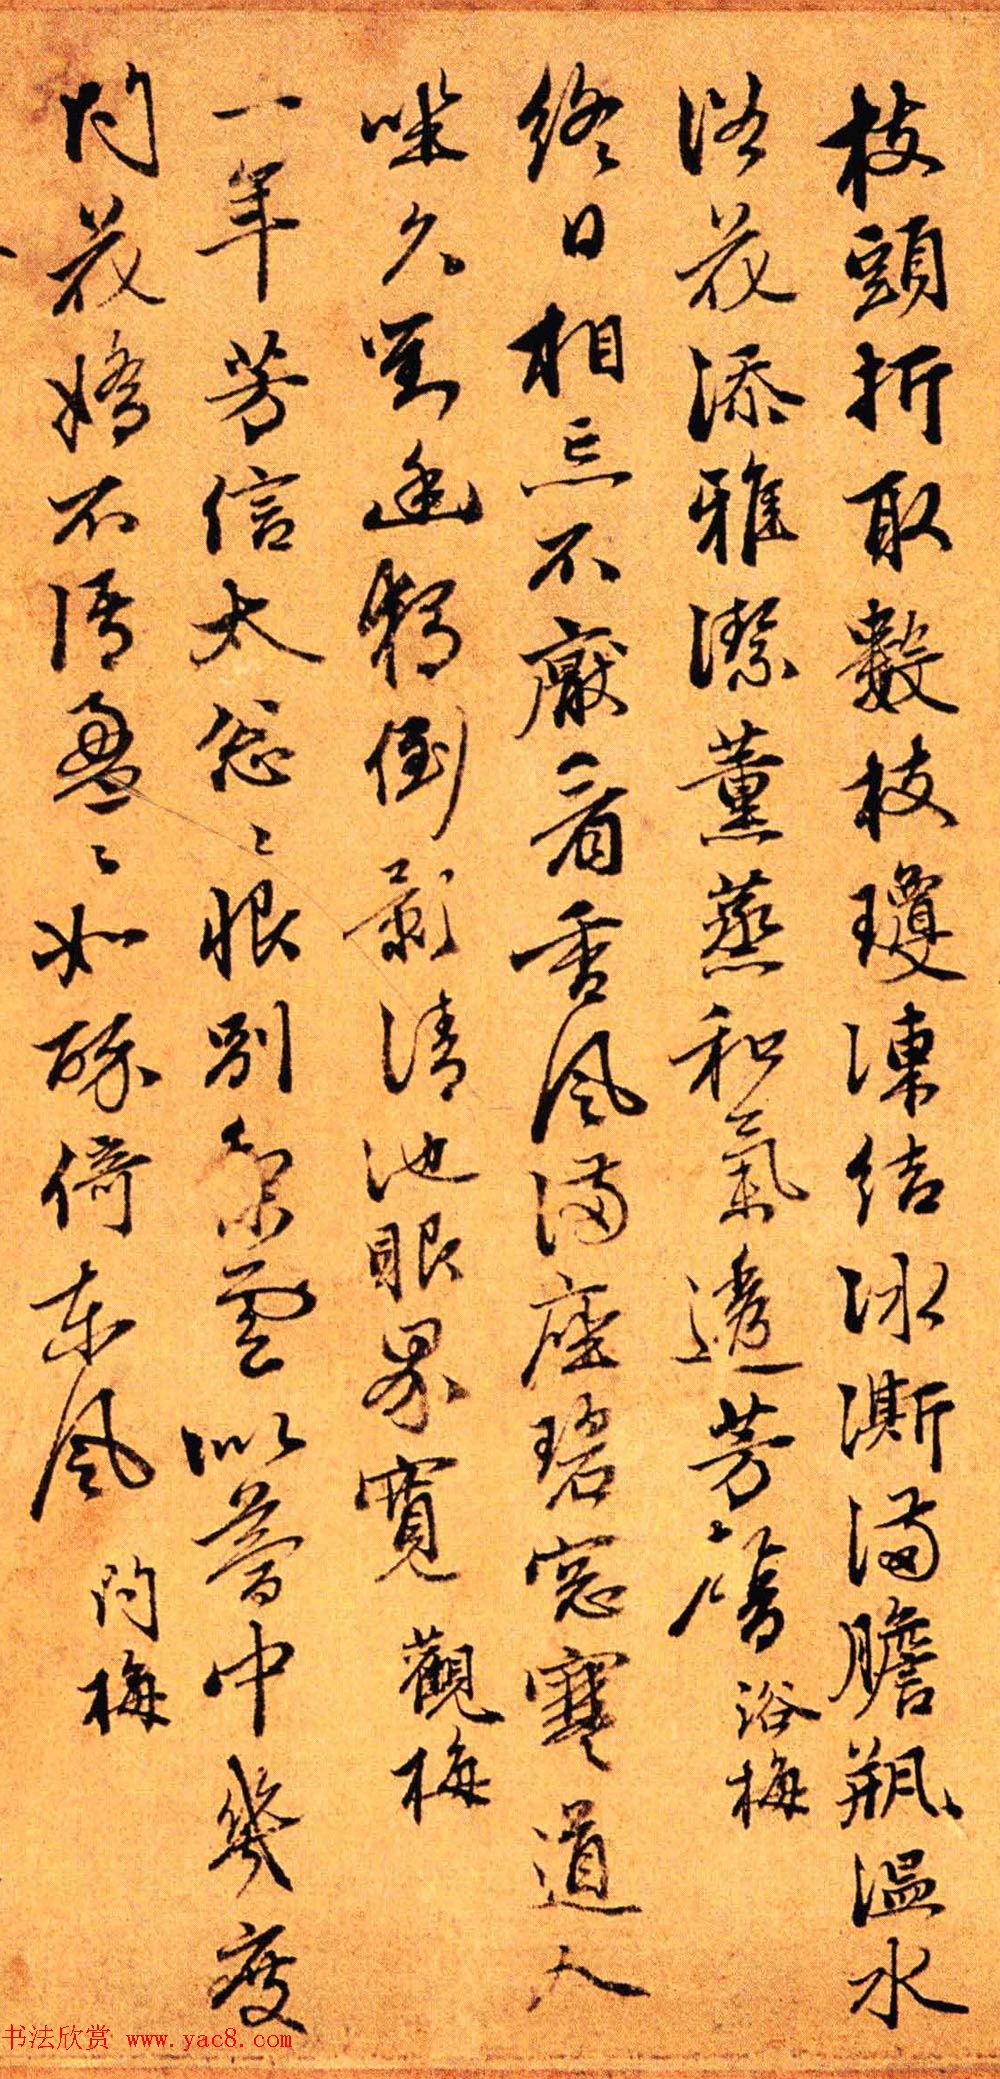 枝頭折取數枝瓊凍結冰澌滿膽瓶溫水
浴花添雅潔薰蒸和氣透芳馨 浴梅
終日相忘不厭看香風滿座碧窓寒道人
坐久對幽獨倒影清池眼界寬 觀梅
一年芳信太怱〻恨別梨雲似夢中幾度
問花嬌不語盈〻如醉倚東風 問梅
书法欣赏 www.yac8.com